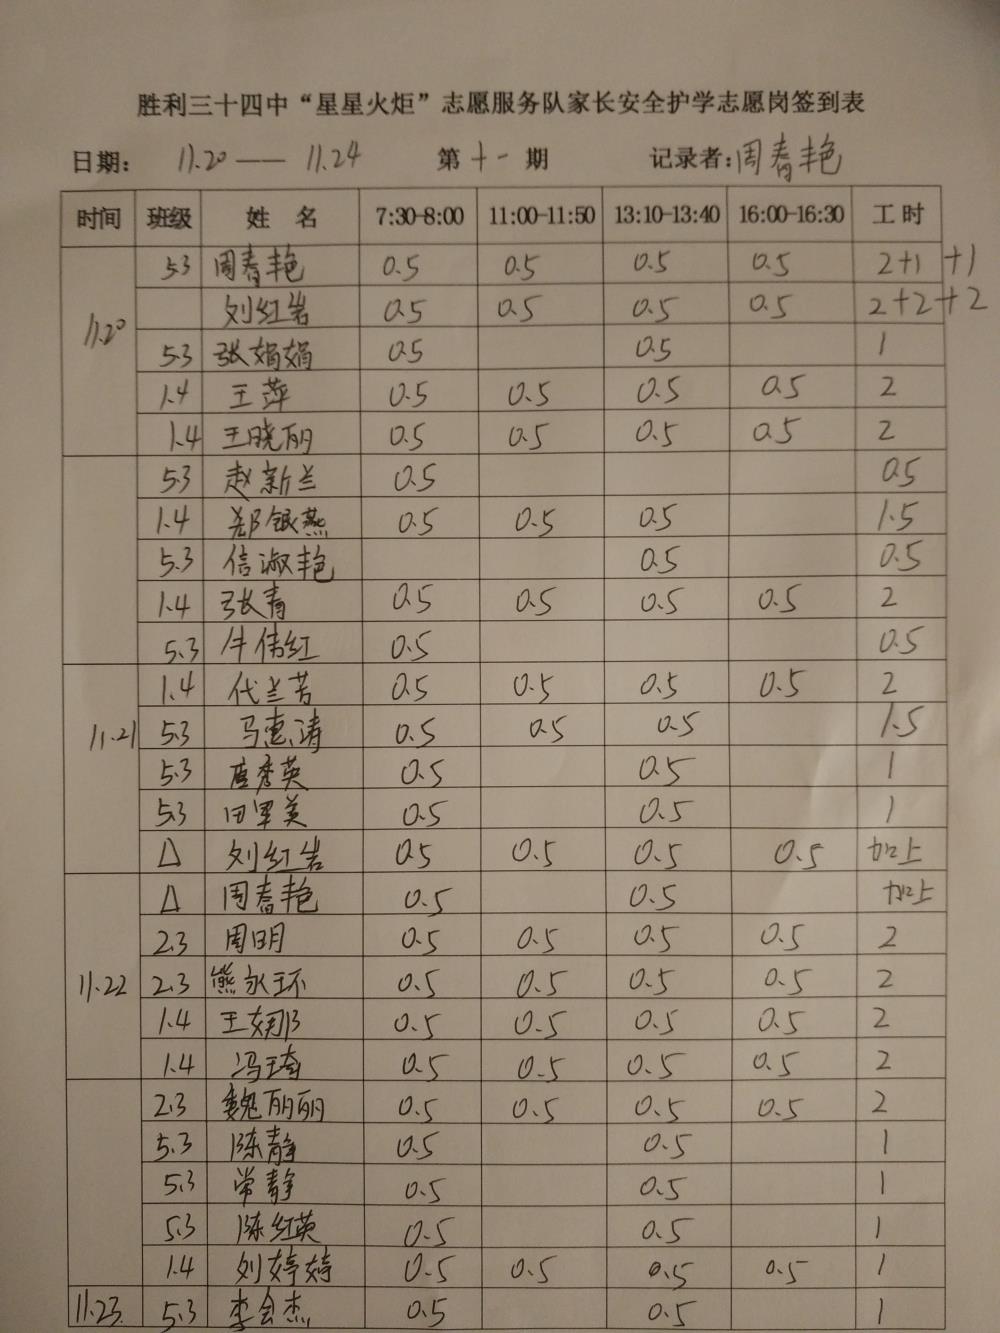 胜利三十四中“星星火炬”志愿服务队家长安全护学志愿岗签到表
日期: 11.20 — 11.24 第十一期 记录者:周春艳
时间 班级 姓 名 7:30-8:00 11:00-11:50 13:10-13:40 16:00-16:30 工时
11.20 5.3 周春艳 0.5 0.5 0.5 0.5 2+1+1
刘红岩 0.5 0.5 0.5 0.5 2+2+2
5.3 张娟娟 0.5 0.5 1
1.4 王萍 0.5 0.5 0.5 0.5 2
1.4 王晓丽 0.5 0.5 0.5 0.5 2
5.3 赵新兰 0.5 0.5
1.4 郑银燕 0.5 0.5 0.5 1.5
5.3 信淑艳 0.5 0.5
1.4 张青 0.5 0.5 0.5 0.5 2
5.3 牛伟红 0.5 0.5
11.21 1.4 代兰芳 0.5 0.5 0.5 0.5 2
5.3 马惠涛 0.5 0.5 0.5 1.5
5.3 秀英 0.5 0.5 1
5.3 田翠美 0.5 0.5 1
△ 刘红岩 0.5 0.5 0.5 0.5 加上
11.22 △ 周春艳 0.5 0.5 加上
2.3 周明 0.5 0.5 0.5 0.5 2
2.3 熊永环 0.5 0.5 0.5 0.5 2
1.4 王娜 0.5 0.5 0.5 0.5 2
1.4 冯琦 0.5 0.5 0.5 0.5 2
2.3 魏丽丽 0.5 0.5 0.5 0.5 2
5.3 陈静 0.5 0.5 1
5.3 常静 0.5 0.5 1
5.3 陈红英 0.5 0.5 1
1.4 刘婷婷 0.5 0.5 0.5 0.5 1
11.23 5.3 李会杰 0.5 0.5 1